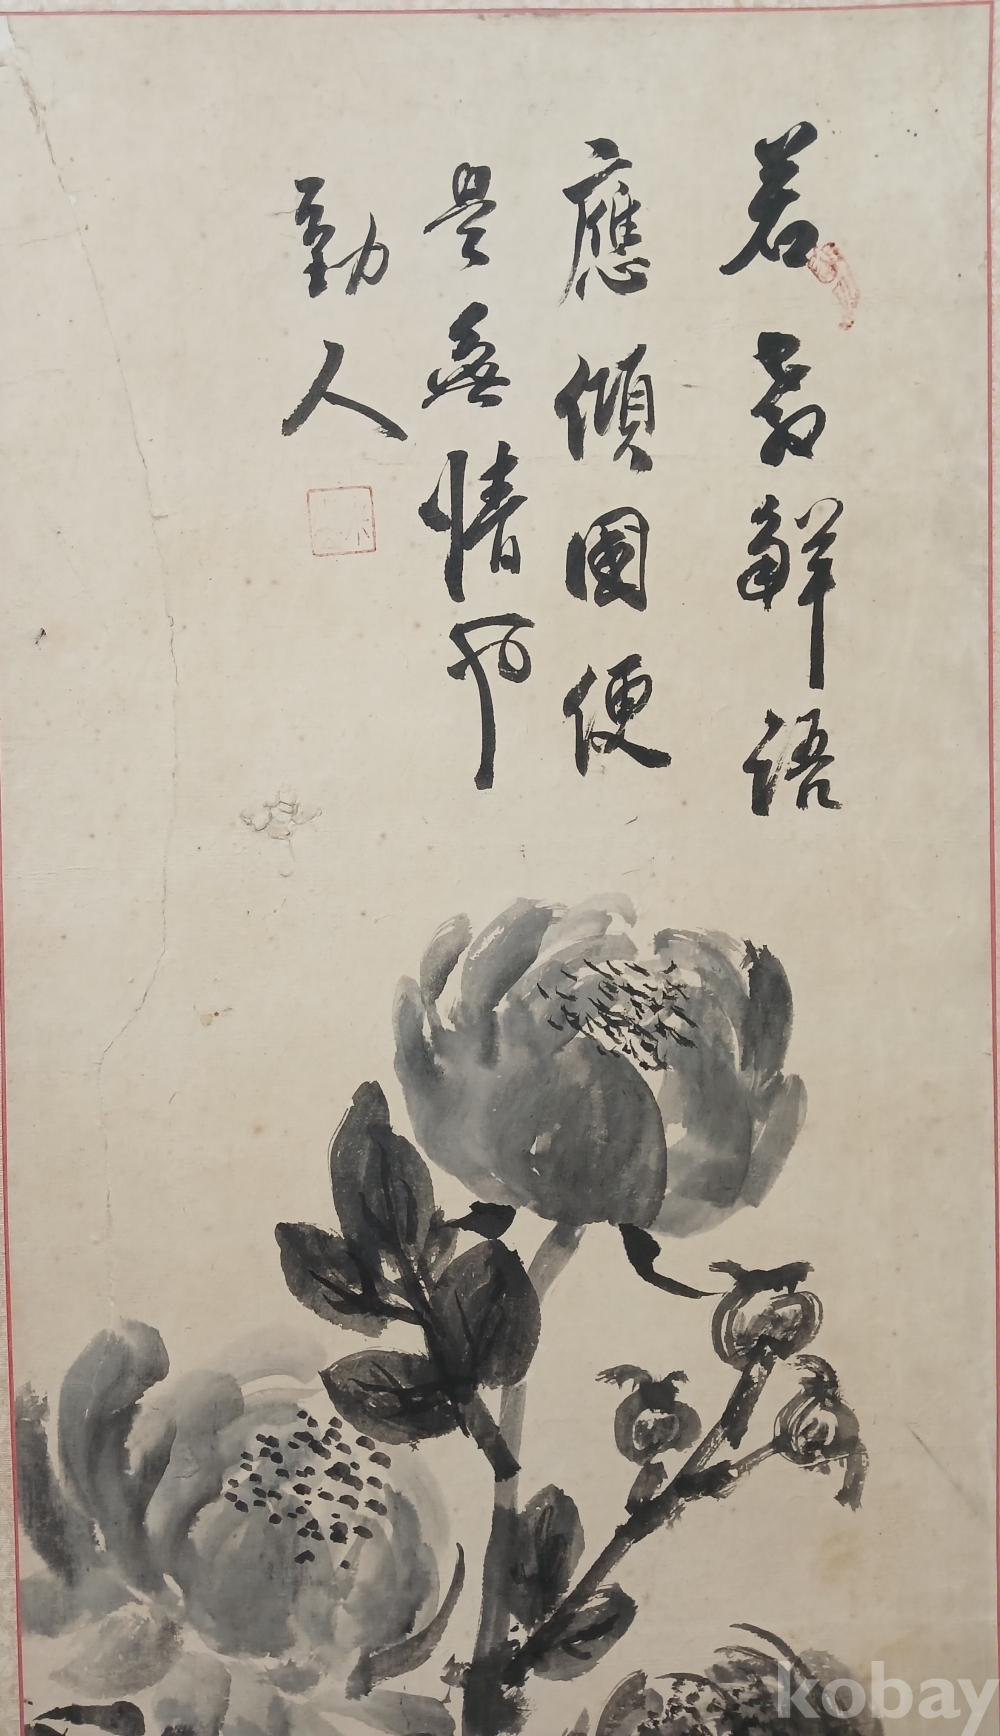 若教解語
應傾國便
是無情也
動人
kobay